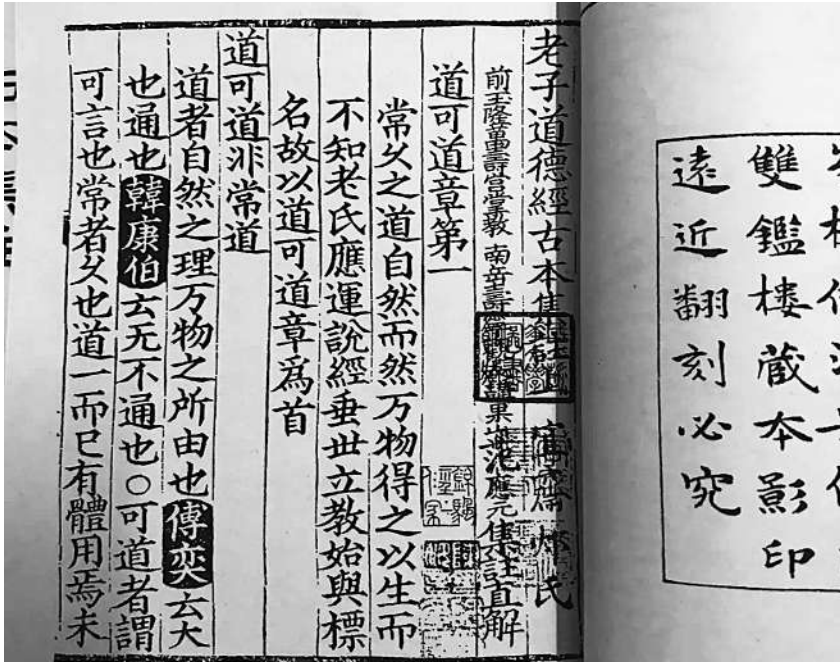 雙鑑樓蔵本影印
遠近翻刻必究
老子道德經古本集
前玉隆萬壽宮掌教 南岳壽 果山范應元集註直解
道可道章第一
常久之道自然而然万物得之以生而
不知老氏應運說經垂世立教始與標
名故以道可道章爲首
道可道非常道
道者自然之理万物之所由也傅奕云大
也通也韓康伯云无不通也○可道者謂
可言也常者久也道一而已有體用焉未